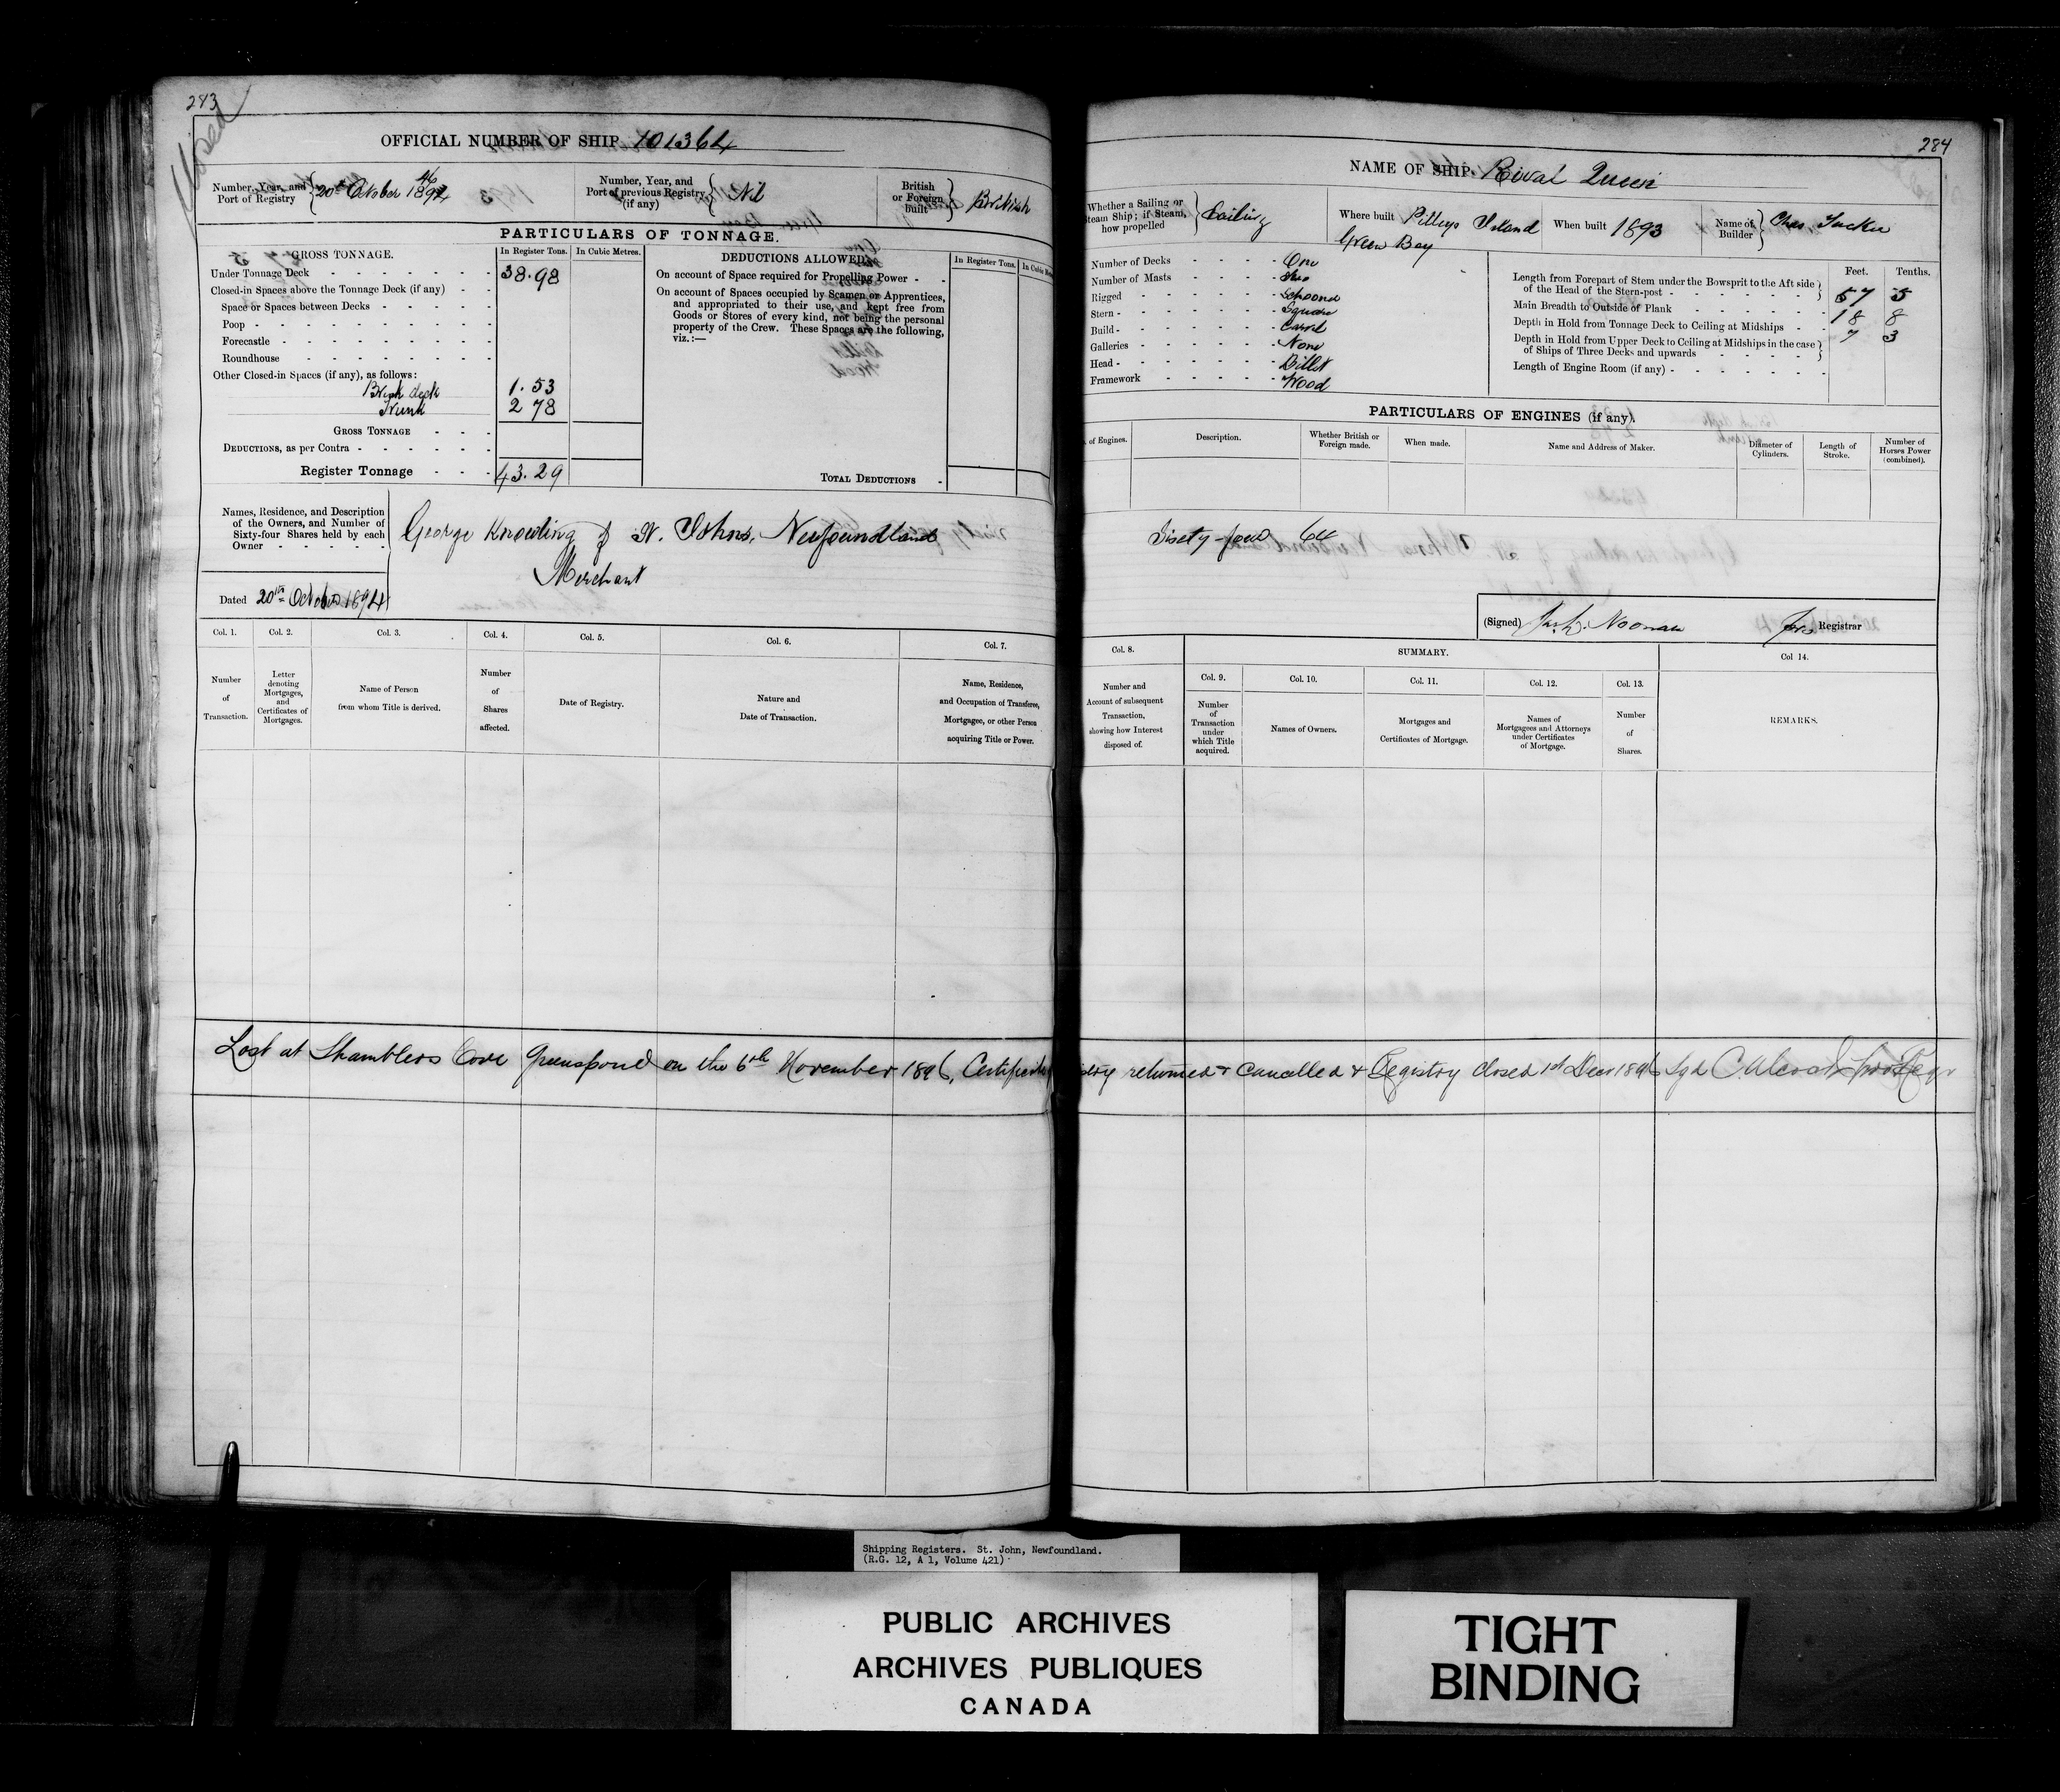 283
Closed
OFFICIAL NUMBER OF SHIP 101364
Number, Year, and Port of Registry { 20th October 1894 46
Number, Year, and Port of previous Registry (if any) { Nil
British or Foreign built } British
PARTICULARS OF TONNAGE.
GROSS TONNAGE. In Register Tons. In Cubic Metres.
Under Tonnage Deck 38.98
Closed-in Spaces above the Tonnage Deck (if any)
Space or Spaces between Decks
Poop
Forecastle
Roundhouse
Other Closed-in Spaces (if any), as follows:
Break deck 1.53
Trunk 2 78
GROSS TONNAGE
DEDUCTIONS, as per Contra
Register Tonnage 43.29
DEDUCTIONS ALLOWED. In Register Tons. In Cubic
On account of Space required for Propelling Power
On account of Spaces occupied by Seamen or Apprentices,
and appropriated to their use, and kept free from
Goods or Stores of every kind, not being the personal
property of the Crew. These Spaces are the following,
viz.:—
TOTAL DEDUCTIONS
Names, Residence, and Description
of the Owners, and Number of
Sixty-four Shares held by each
Owner
George Knowling of St. Johns, Newfoundland
Merchant
Dated 20th October 1894
Col. 1. Col. 2. Col. 3. Col. 4. Col. 5. Col. 6. Col. 7.
Number of Transaction.
Letter denoting Mortgages, and Certificates of Mortgages.
Name of Person from whom Title is derived.
Number of Shares affected.
Date of Registry.
Nature and Date of Transaction.
Name, Residence, and Occupation of Transferee, Mortgagee, or other Person acquiring Title or Power.
Lost at Shamblers Cove Greenspond on the 6th November 1896, Certificate
284
NAME OF SHIP. Rival Queen
Whether a Sailing or Steam Ship; if Steam, how propelled } Sailing
Where built Pilleys Island
Green Bay
When built 1893
Name of Builder } Chas. Tucker
Number of Decks One
Number of Masts Two
Rigged Schooner
Stern Square
Build Carvel
Galleries None
Head Billet
Framework Wood
Feet. Tenths.
Length from Forepart of Stem under the Bowsprit to the Aft side of the Head of the Stern-post 57 5
Main Breadth to Outside of Plank 18 8
Depth in Hold from Tonnage Deck to Ceiling at Midships 7 3
Depth in Hold from Upper Deck to Ceiling at Midships in the case of Ships of Three Decks and upwards
Length of Engine Room (if any)
PARTICULARS OF ENGINES (if any).
of Engines. Description. Whether British or Foreign made. When made. Name and Address of Maker. Diameter of Cylinders. Length of Stroke. Number of Horses Power (combined).
Sixty-four 64
(Signed) Noonan Registrar
Col. 8. SUMMARY. Col 14.
Col. 9. Col. 10. Col. 11. Col. 12. Col. 13.
Number and Account of subsequent Transaction, showing how Interest disposed of.
Number of Transaction under which Title acquired.
Names of Owners.
Mortgages and Certificates of Mortgage.
Names of Mortgagees and Attorneys under Certificates of Mortgage.
Number of Shares.
REMARKS.
returned & cancelled & Registry closed 1st Decr 1896 Sgd
Shipping Registers. St. John, Newfoundland.
(R.G. 12, A 1, Volume 421)
PUBLIC ARCHIVES
ARCHIVES PUBLIQUES
CANADA
TIGHT
BINDING